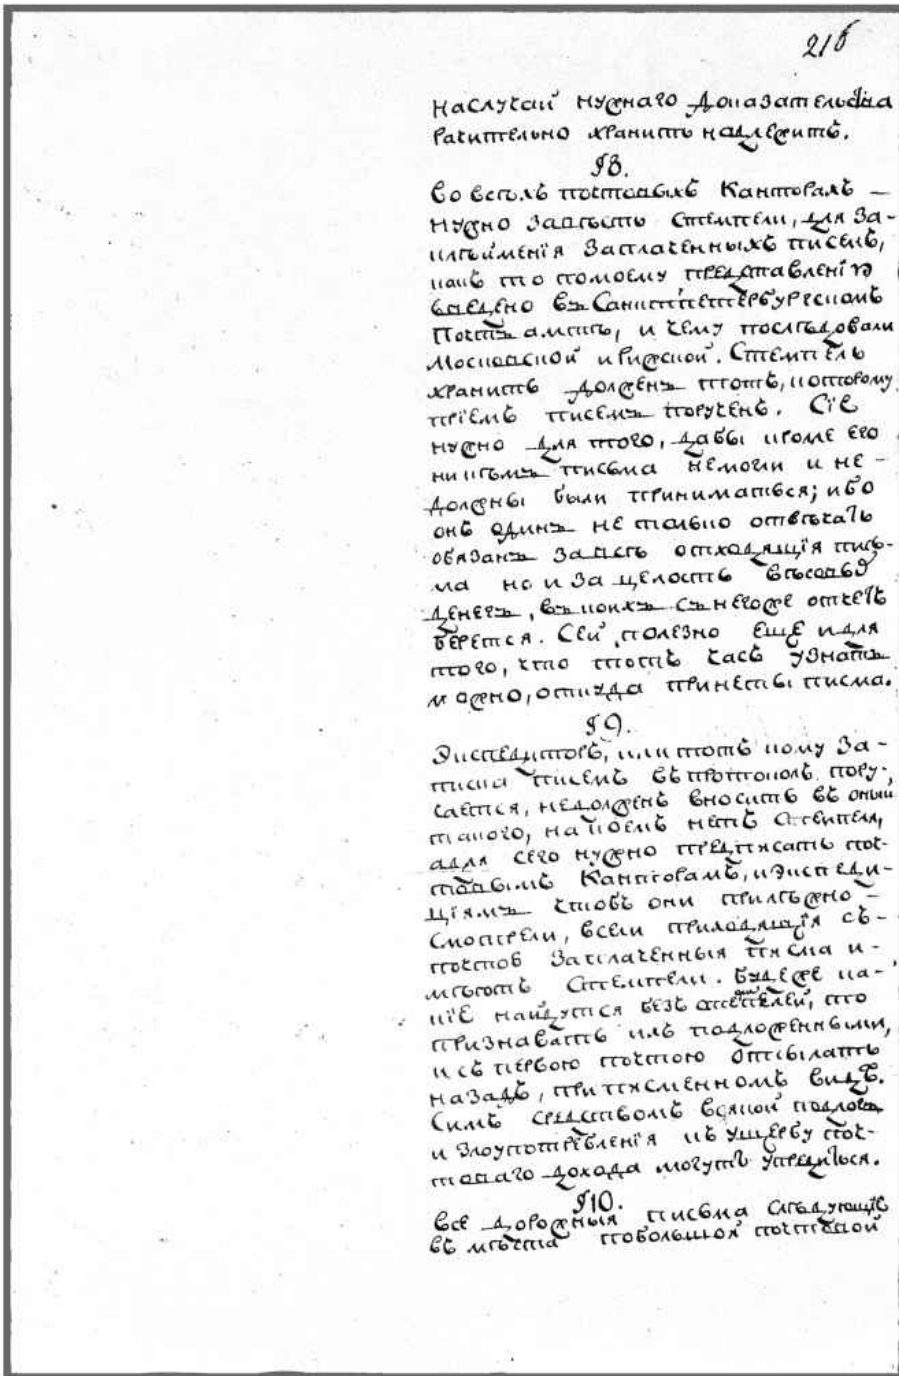 216
наслучай нужнаго доказательства
рачительно хранить надлежитъ.
§8.
Во всѣхъ почтовыхъ Канторахъ —
нужно завѣсть Стемпели, для за-
клѣйменїя заплаченныхъ писемъ,
какъ то помоему представленїю
введено въ Санктпетербургскомъ
Почтъ амтѣ, и чему послѣдовали
Московской и Рижской. Стемпель
хранить долженъ тотъ, которому
прїемъ писемъ порученъ. Сїе
нужно для того, дабы кроме его
никѣмъ письма немогли и не-
должны были приниматься; ибо
онъ одинъ не только отвѣчать
обязанъ за всѣ отходящїя пись-
ма но и за целость вѣсовыхъ
денегъ, въ коихъ съ негоже отчетъ
берется. Сей полезно еще и для
того, что тотъ часъ узнать
можно, откуда принеты писма.
§9.
Экспедиторъ, или тотъ кому за-
писка писемъ въ протоколъ пору-
чается, недолженъ вносить въ оный
такого, на коемъ нетъ Стемпеля,
адля сего нужно предписать поч-
товымъ Канторамъ, и Экспеди-
цїямъ чтобъ они прилѣжно —
смотрели, всели приходящїя съ-
почтов заплаченныя писма и-
мѣютъ Стемпели. Будеже ка-
кїе найдутся безъ стемпелей, то
признавать ихъ подложенными,
и съ первою почтою отсылать
назадъ, при писменномъ видѣ.
Симъ средствомъ всякой подлогъ
и злоупотребленїя къ ущербу поч-
товаго дохода могутъ упредиться.
§10.
Все дорожныя писма слѣдующїе
въ мѣста побольшой почтовой